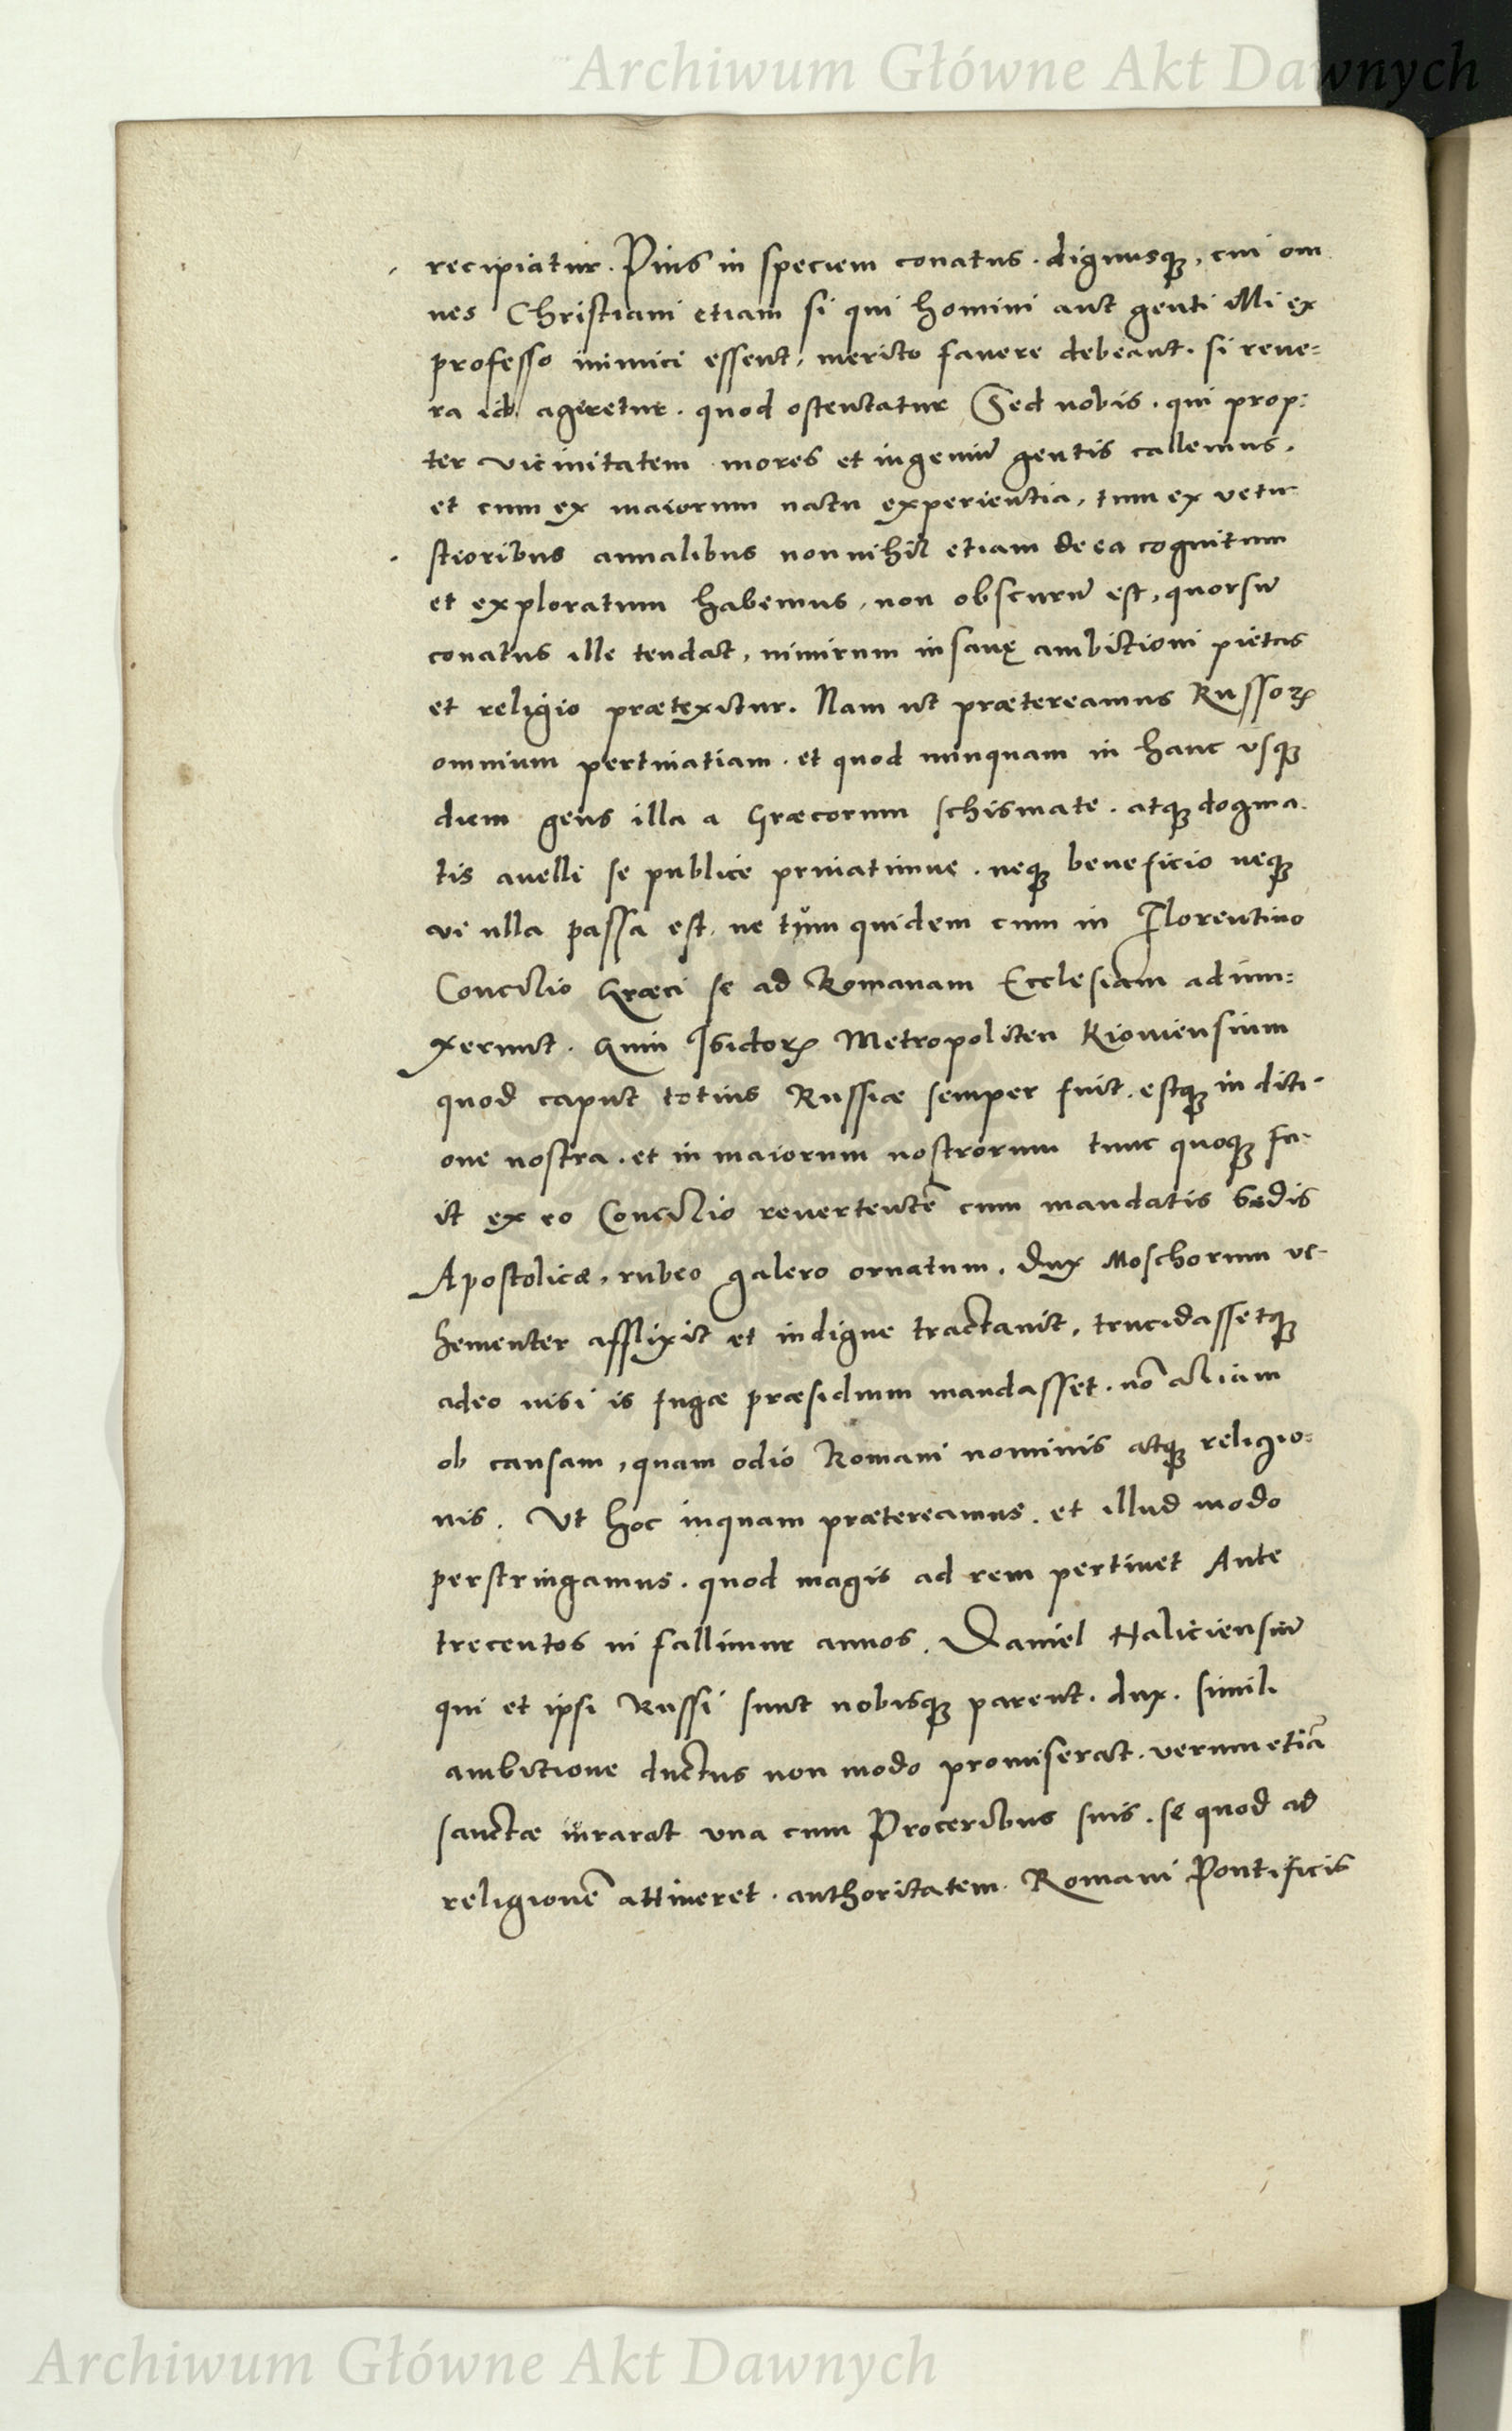 Archiwum Główne Akt Dawnych
recipiatur. Pius in speciem conatus. dignusq3, cui om
nes Christiani etiam si qui homini aut genti illi ex
professo inimici essent, merito fauere debeant. si reue=
ra id ageretur. quod ostentatur Sed nobis. qui prop:
ter vicinitatem mores et ingeniū gentis callemus.
et cum ex maiorum natu experientia, tum ex vetu
stioribus annalibus nonnihil etiam de ea cognitum
et exploratum habemus, non obscurū est, quorsū
conatus ille tendat, nimirum insanę ambitioni pietas
et religio prætexitur. Nam ut prætereamus Russoꝝ
omnium pertinatiam. et quod nunquam in hanc usq3
diem gens illa a Græcorum schismate. atq3 dogma.
tis auelli se publice priuatimue. neq3 beneficio neq3
vi ulla passa est, ne tum quidem cum in Florentino
Concilio Græci se ad Romanam Ecclesiam adiun=
xerunt. Quin Isidoꝝ Metropoliten Kiouiensium
quod caput totius Russiæ semper fuit. estq3 in diti-
one nostra. et in maiorum nostrorum tunc quoq3 fu-
it ex eo Concilio reuertentē cum mandatis Sedis
Apostolicæ, rubeo galero ornatum. Dux Moschorum ve-
hementer afflixit et indigne tractauit, trucidassetq3
adeo nisi is fugæ præsidium mandasset. nō aliam
ob causam, quam odio Romani nominis atq3 religio=
nis. Ut hoc inquam prætereamus. et illud modo
perstringamus. quod magis ad rem pertinet Ante
trecentos ni fallimur annos. Daniel Haliciensiū
qui et ipsi Russi sunt nobisq3 parent. dux. simili
ambitione ductus non modo promiserat. verum etiā
sanctæ iurarat una cum Proceribus suis. se quod ad
religionē attineret. authoritatem. Romani Pontificis
Archiwum Główne Akt Dawnych